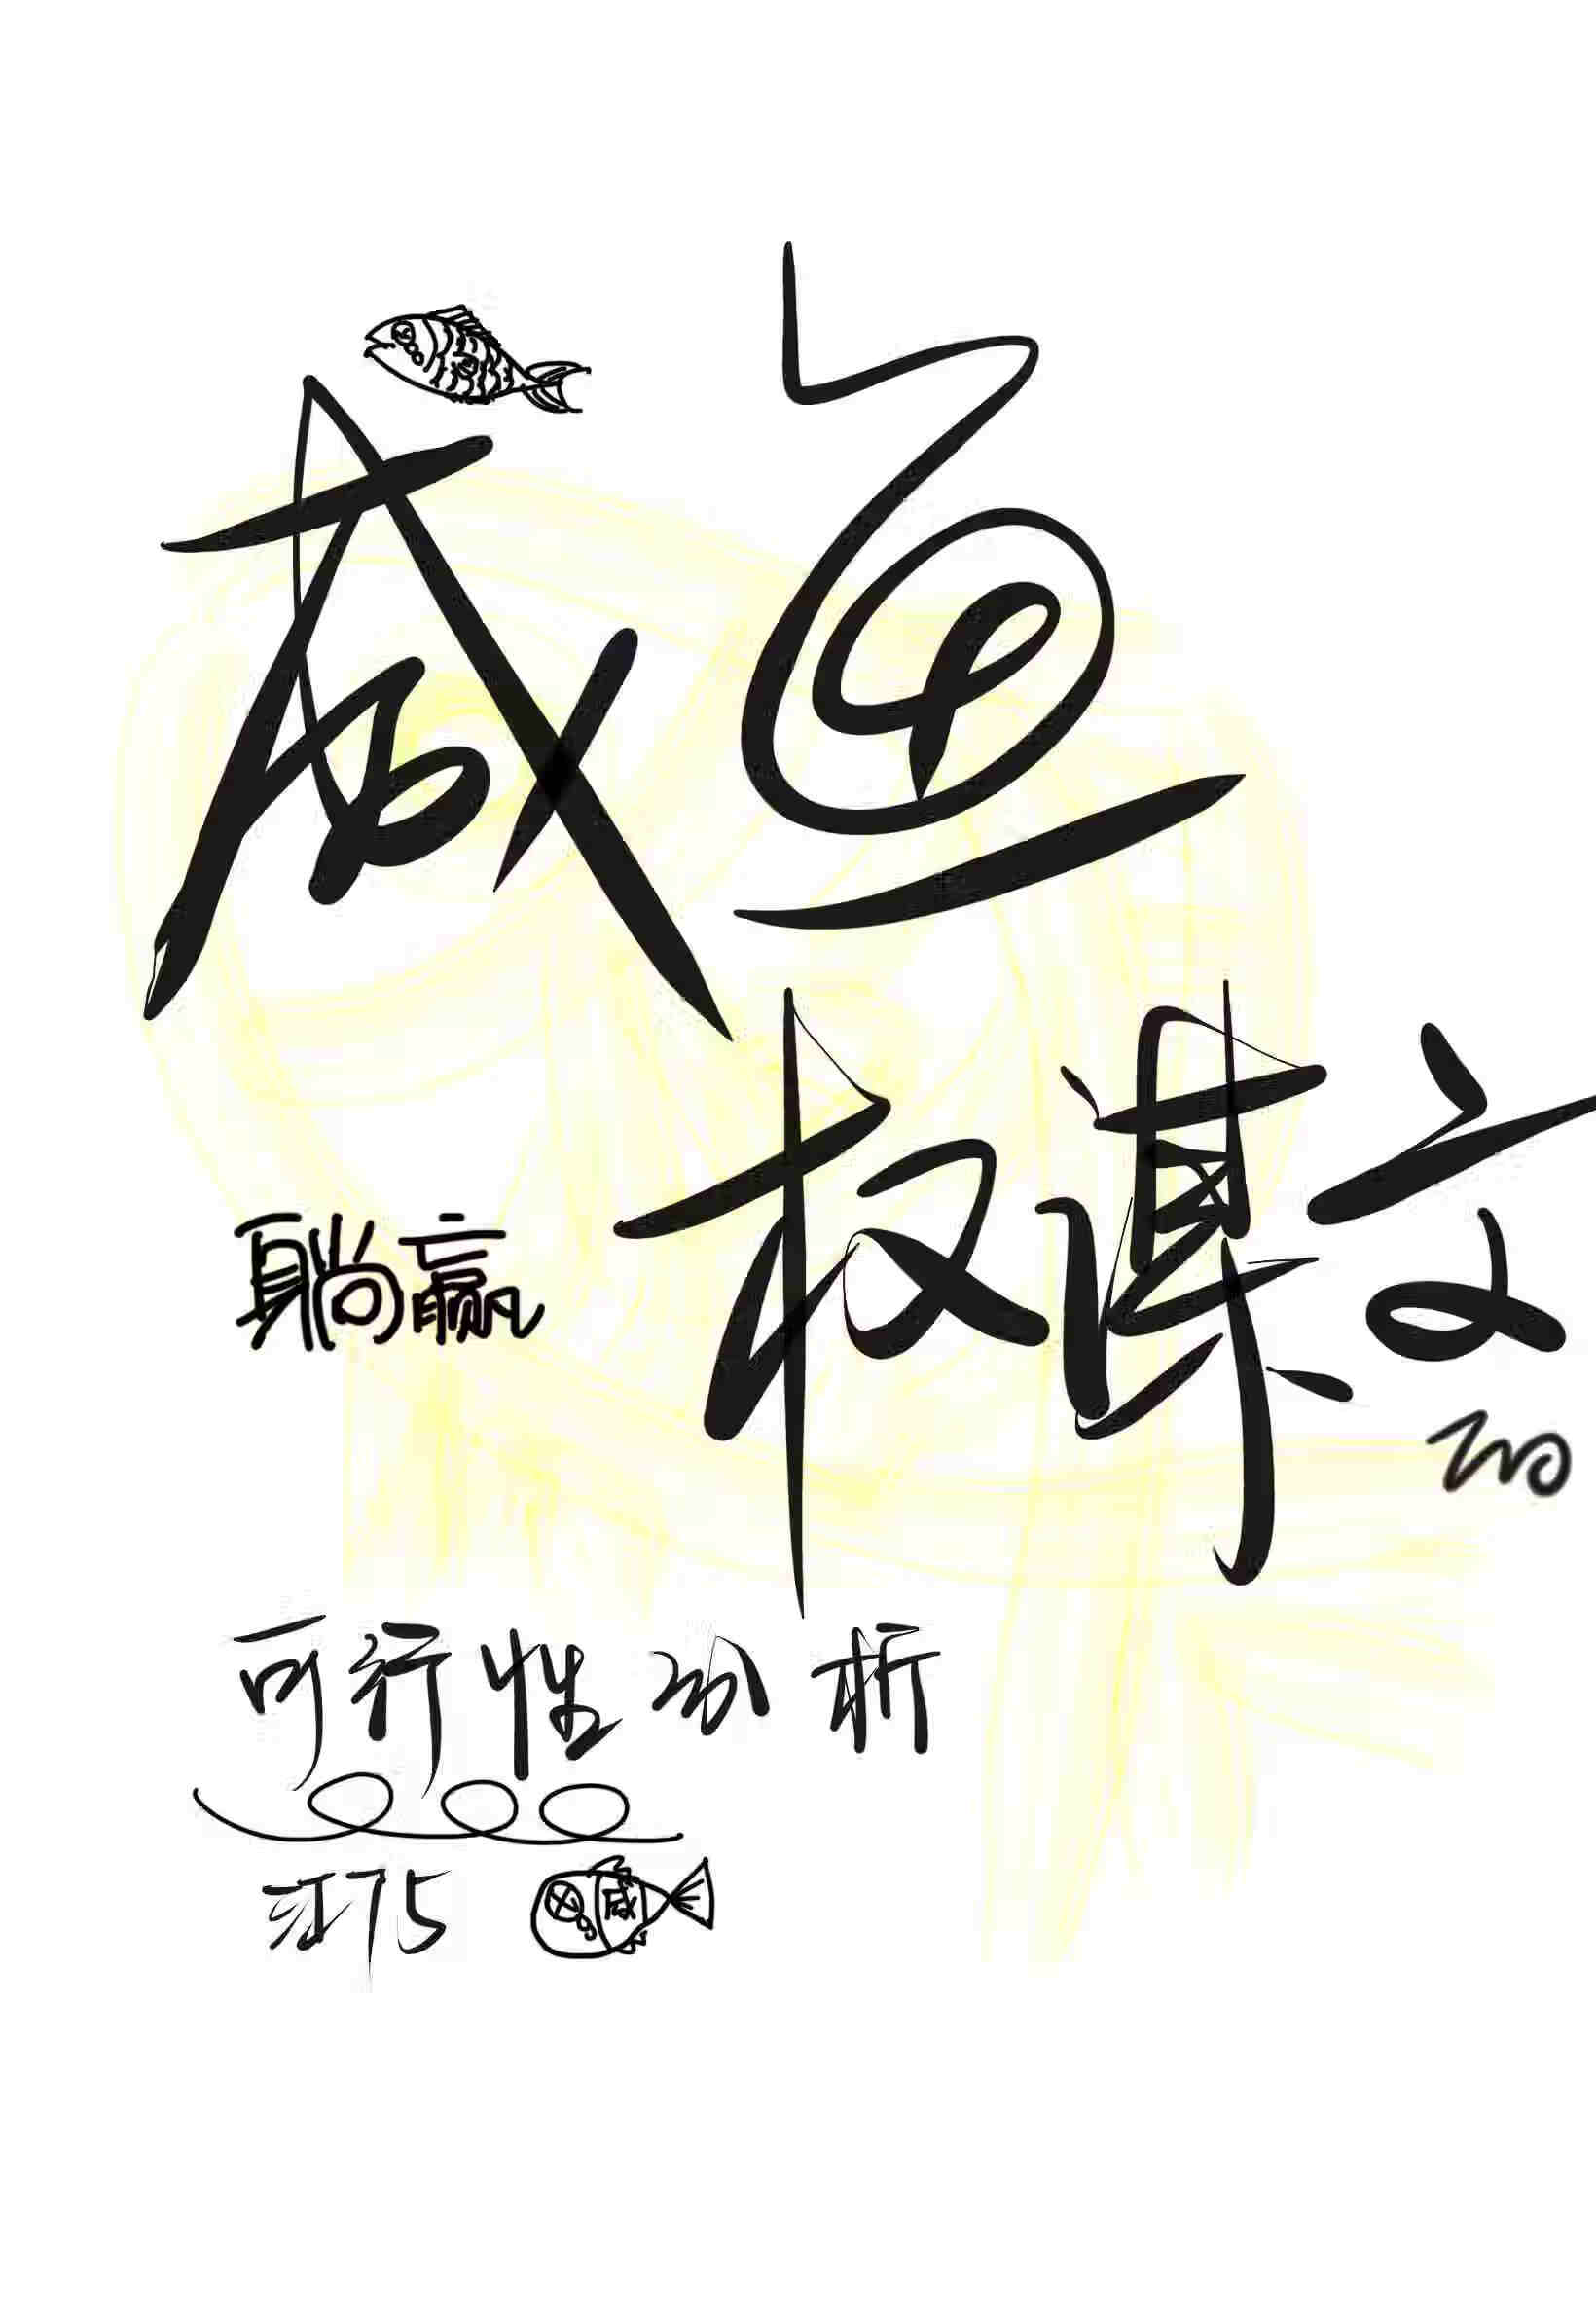 咸鱼
躺赢 权谋文
的
可行性分析
江75 咸